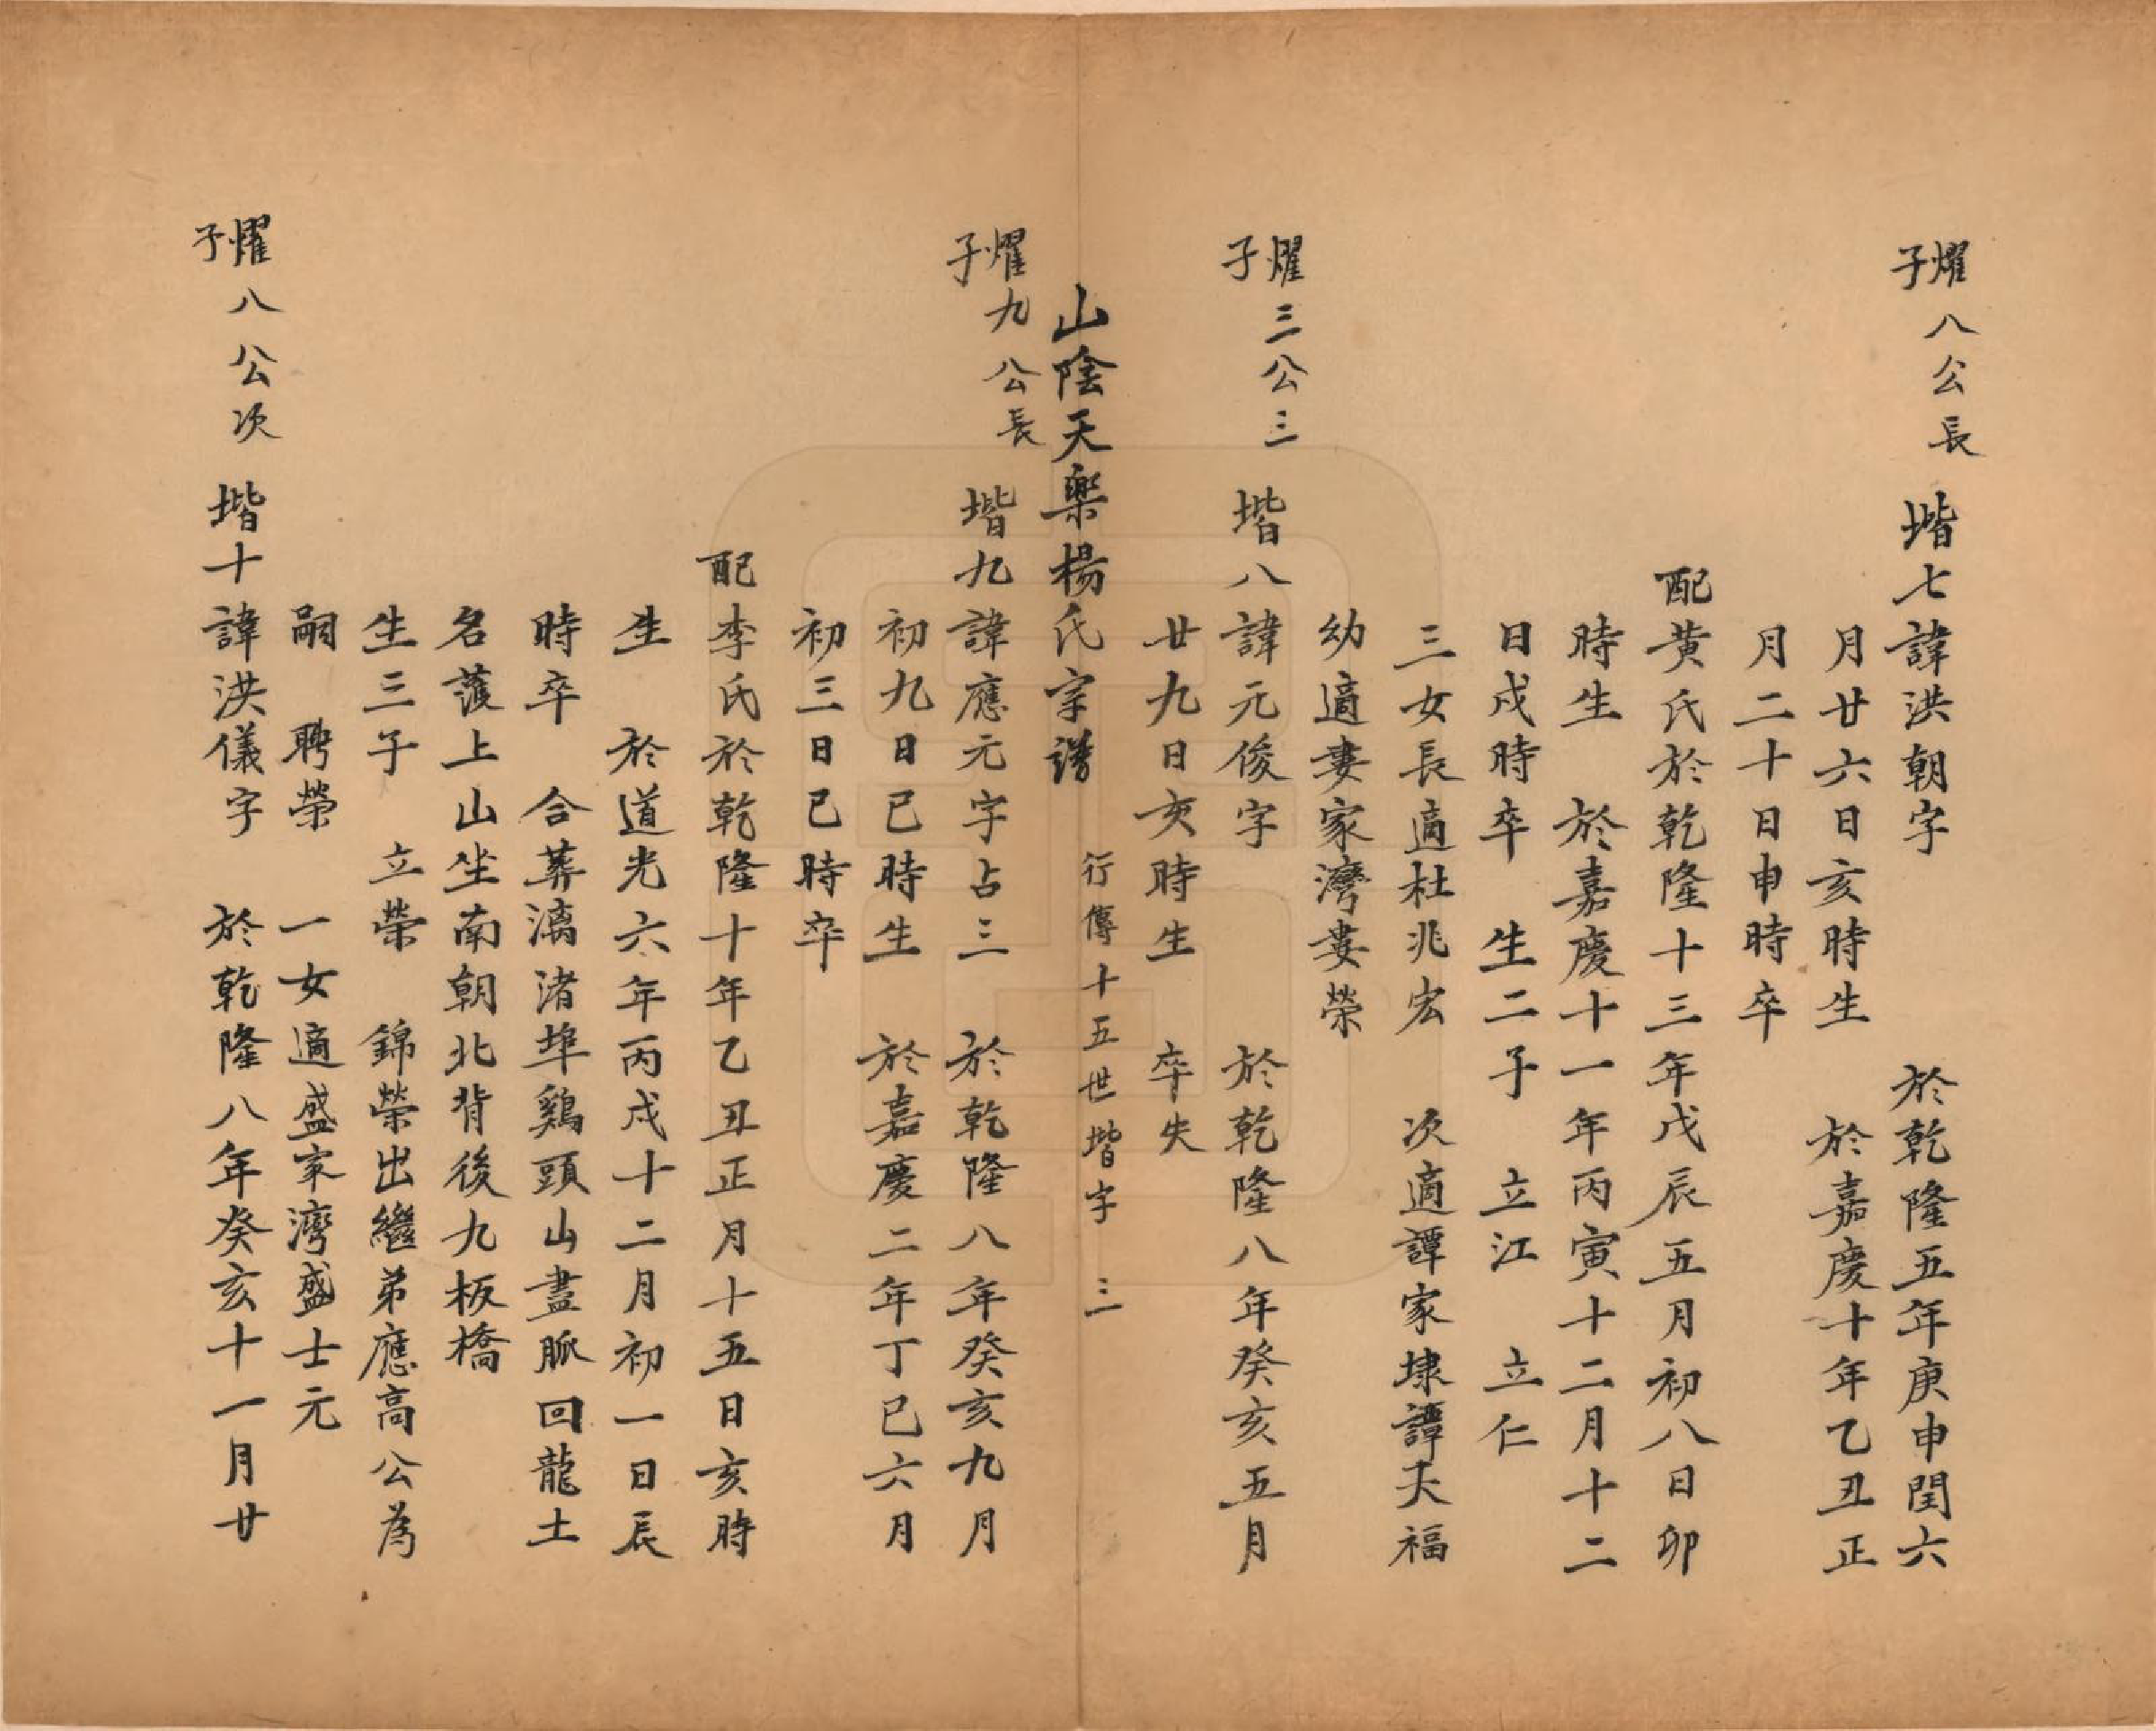 燿八公長子
堦七諱洪朝字 於乾隆五年庚申閏六
月廿六日亥時生 於嘉慶十年乙丑正
月二十日申時卒
配黄氏於乾隆十三年戊辰五月初八日卯
時生 於嘉慶十一年丙寅十二月十二
日戍時卒 生二子 立江 立仁
三女長適杜兆宏 次適譚家埭譚天福
幼適婁家灣婁榮
燿三公三子
堦八諱元俊字 於乾隆八年癸亥五月
廿九日亥時生 卒失
山陰天樂楊氏宗譜 行傳十五世堦字 三
燿九公長子
堦九諱應元字占三 於乾隆八年癸亥九月
初九日已時生 於嘉慶二年丁巳六月
初三日已時卒
配李氏於乾隆十年乙丑正月十五日亥時
生 於道光六年丙戍十二月初一日辰
時卒 合葬漓渚埠鷄頭山盡脈回龍土
名蒦上山坐南朝北背後九板橋
生三子 立榮 錦榮出繼弟應高公為
嗣 聘榮 一女適盛家灣盛士元
燿八公次子
堦十諱洪儀字 於乾隆八年癸亥十一月廿